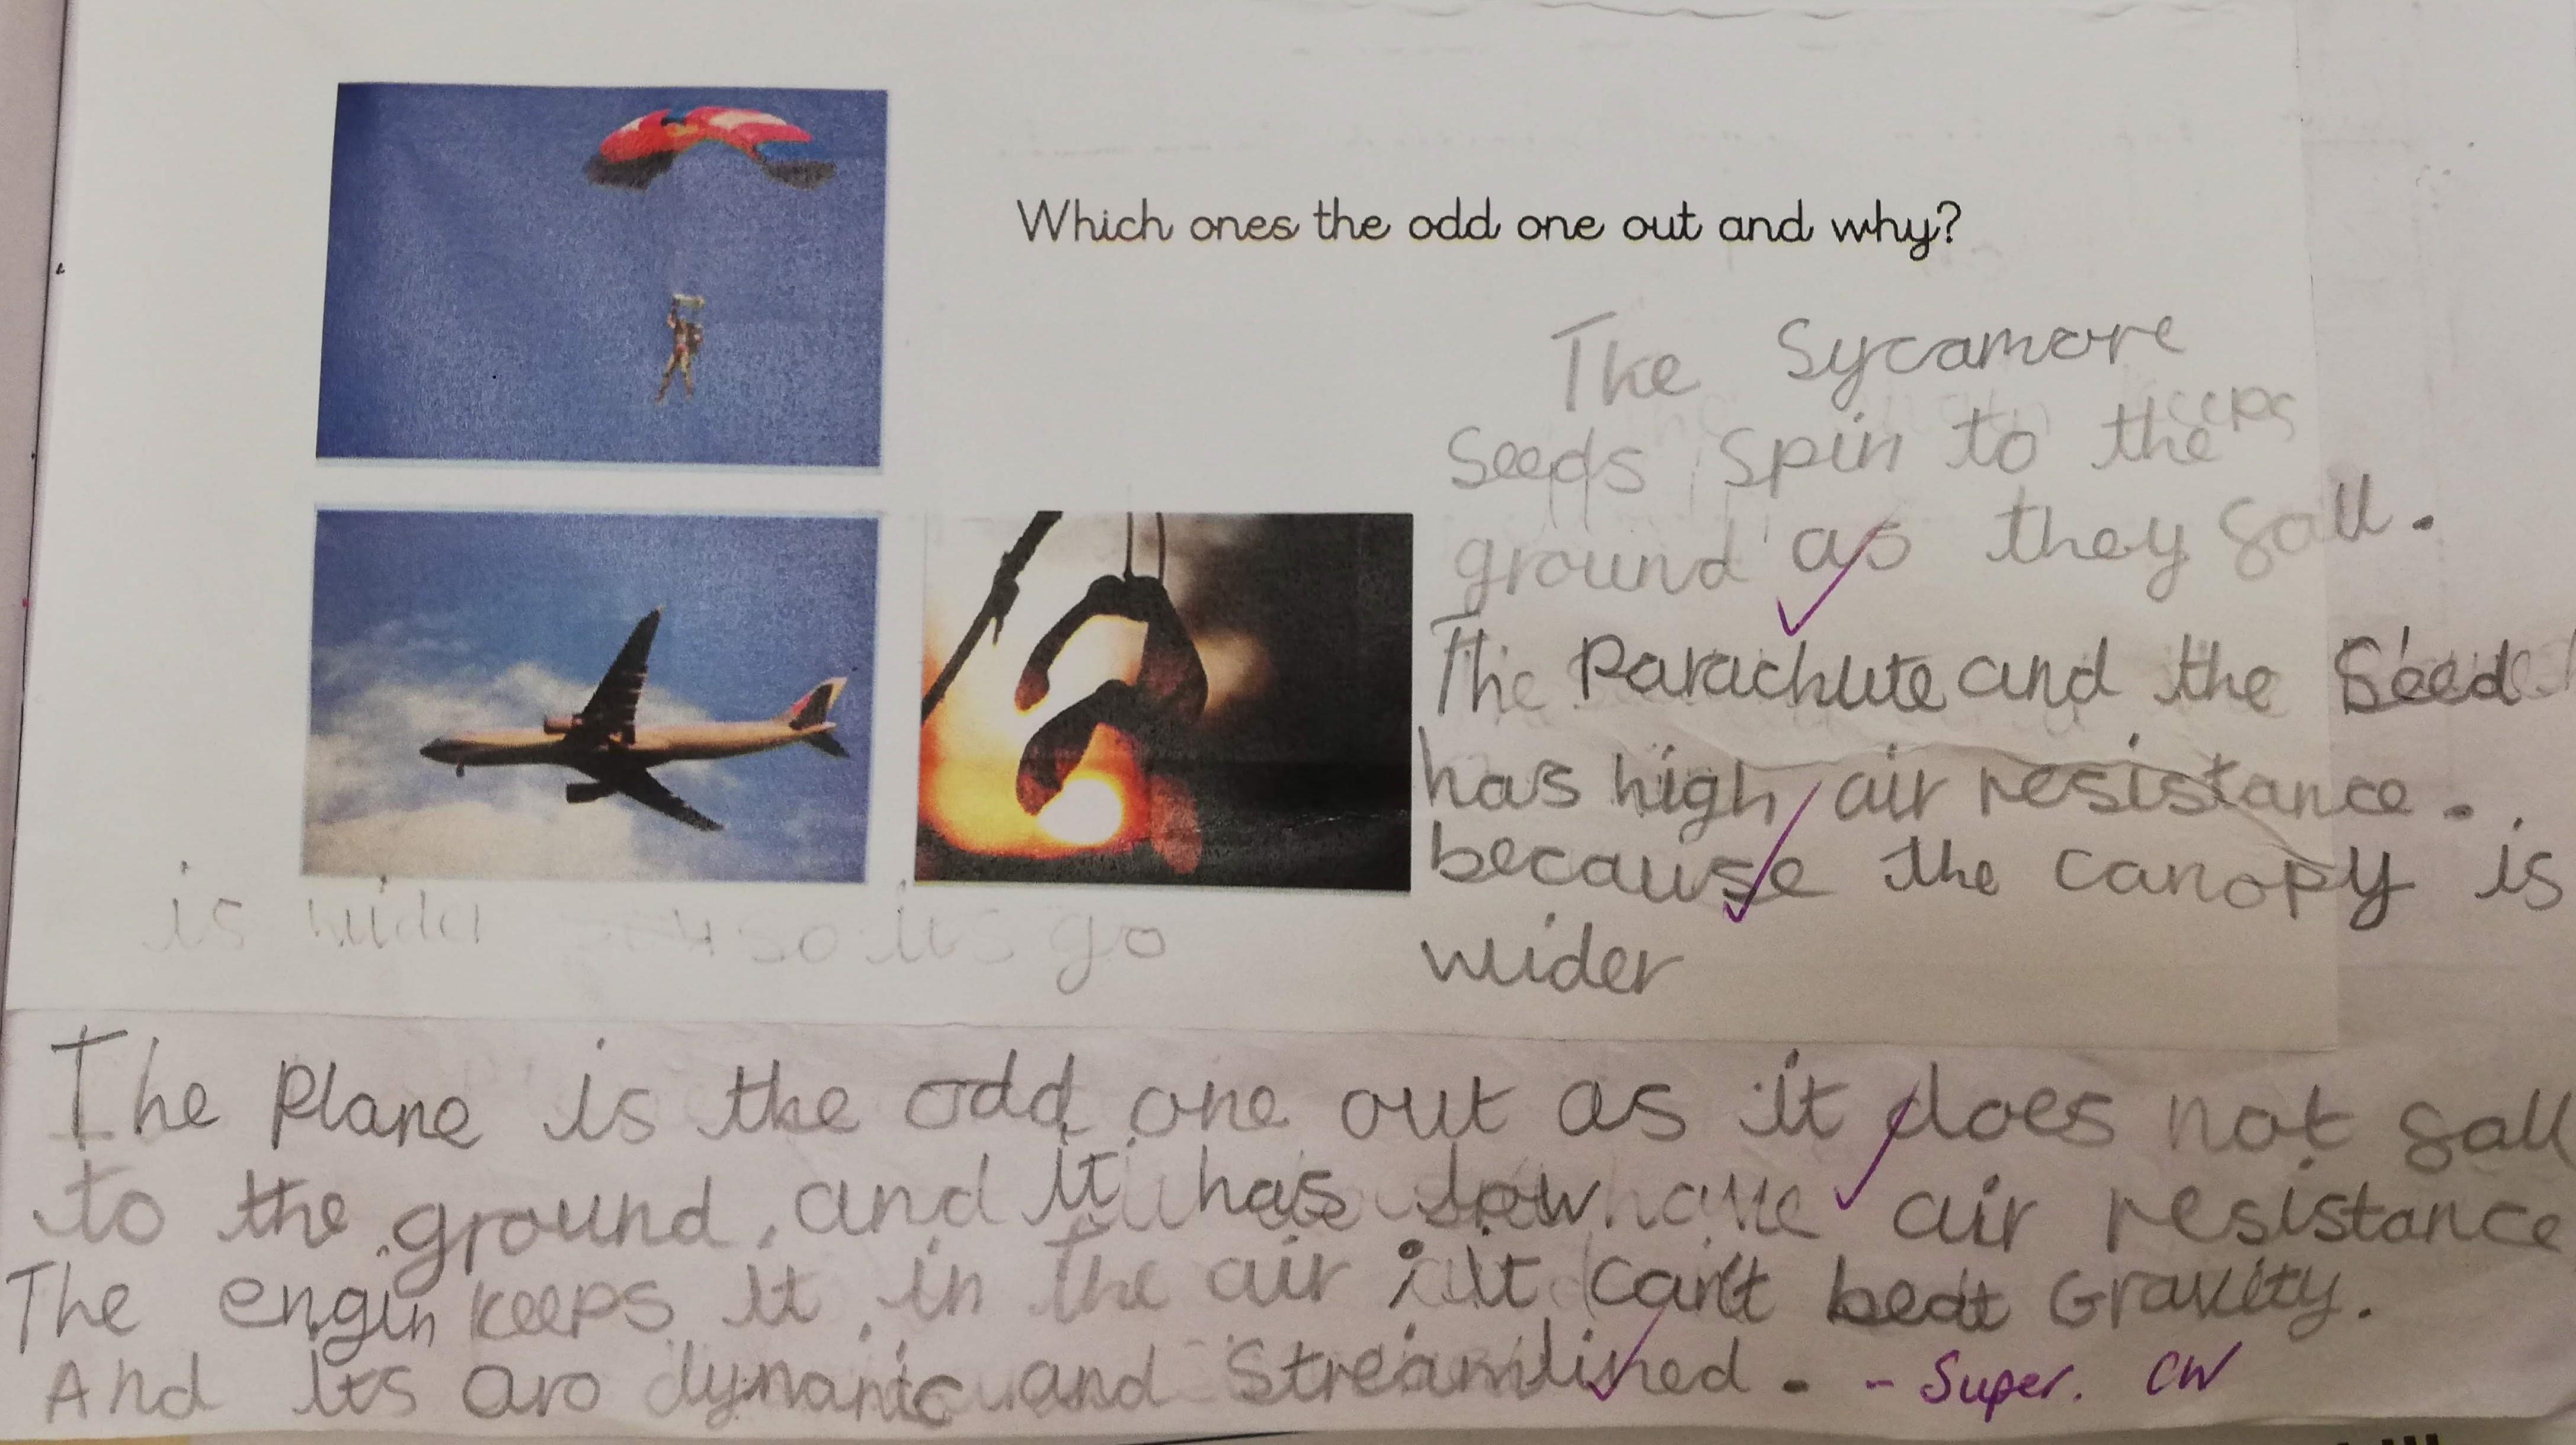 Which ones the odd one out and why?
The Sycamore
Seeds spin to the
ground as they fall.
The Parachute and the Seed
has high air resistance.
because the canopy is
wider
is wider so its go
The Plane is the odd one out as it does not fall
to the ground, and it has low air resistance
The engin keeps it in the air it can't beat Gravity.
And its aro dynamic and streamlined. - Super. CW